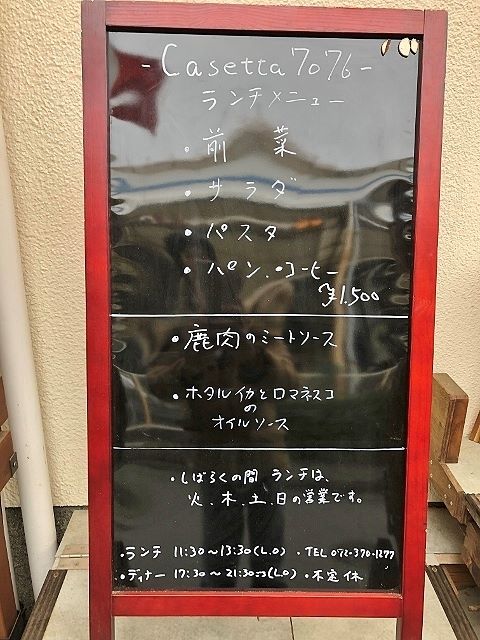 - Casetta 7076 -
ランチメニュー
・前菜
・サラダ
・パスタ
・パン、・コーヒー
¥1,500
・鹿肉のミートソース
・ホタルイカとロマネスコ
の
オイルソース
・しばらくの間 ランチは、
火、木、土、日の営業です。
・ランチ 11:30～13:30(L.O) ・TEL 072-370-1277
・ディナー 17:30～21:30(L.O) ・不定休